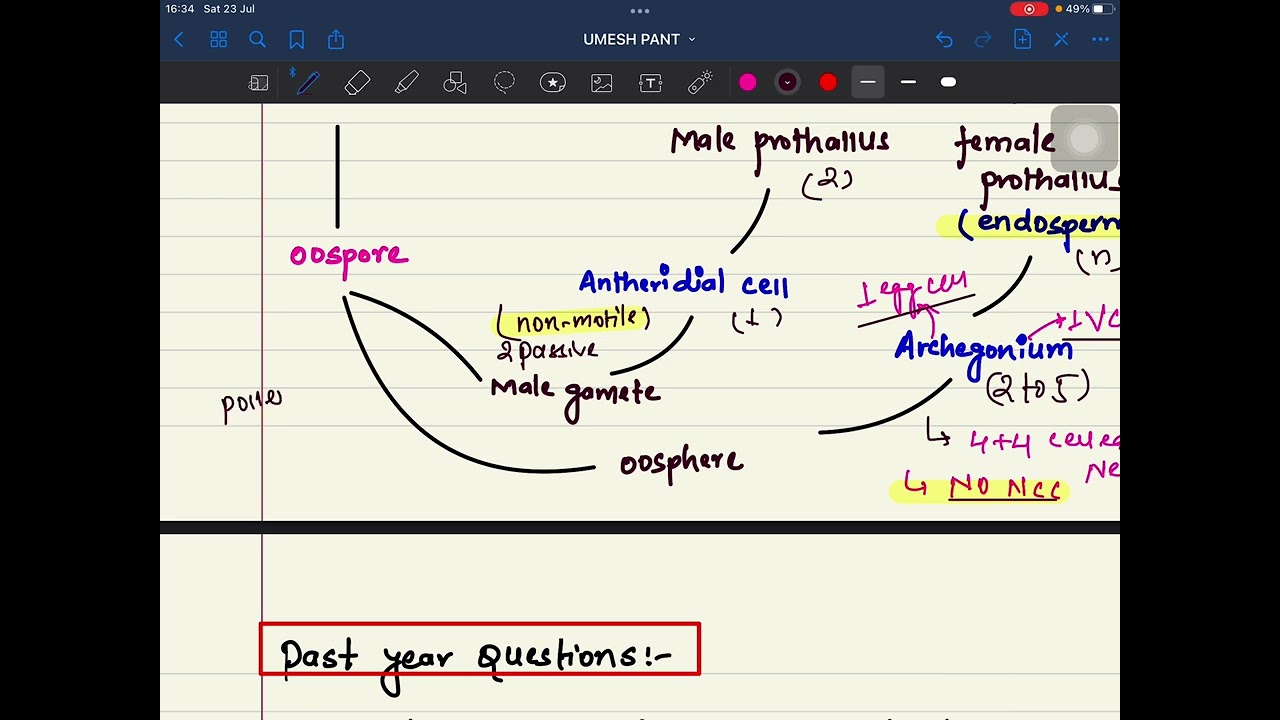 16:34 Sat 23 Jul
49%
UMESH PANT
T
Male prothallus
(2)
female
prothallus
(endosperm
(n)
oospore
Antheridial cell
(1)
1 egg cell
(non-motile)
2 passive
Male gamete
Archegonium
1 VC
(2 to 5)
oosphere
4+4 cell
NO NCC
Past year Questions:-